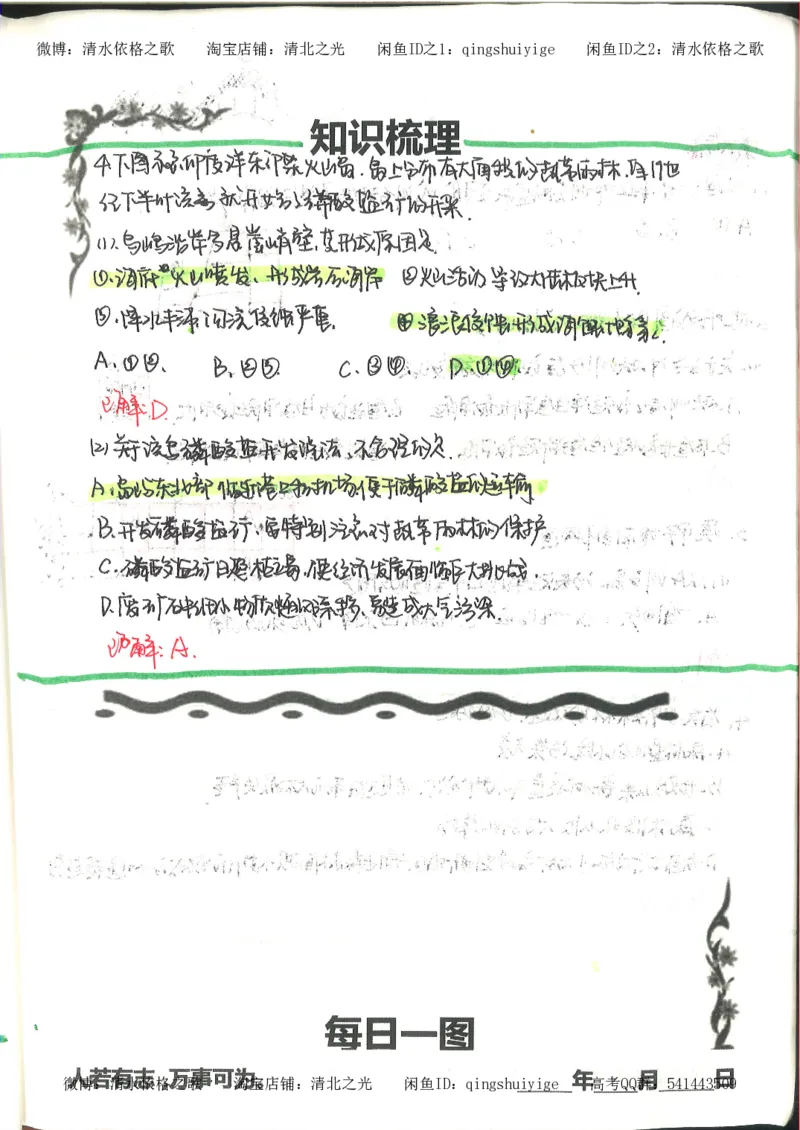 微博：清水依格之歌 淘宝店铺：清北之光 闲鱼ID之1：qingshuiyige 闲鱼ID之2：清水依格之歌
知识梳理
4.下图示意印度洋东部某火山岛,岛上分布有大面积的热带雨林,自19世
纪下半叶该岛就开始了磷酸盐矿的开采.
(1).岛屿沿岸多悬崖峭壁,其形成原因是
①.海底火山喷发、形成岩石海岸 ②火山活动导致大陆板块上升
③.降水丰沛,河流侵蚀严重. ④海浪侵蚀形成海蚀地貌.
A.①②. B.②③. C.③④. D.①④.
解:D
(2)关于该岛磷酸盐开发说法,不合理的是
A.岛屿东北部临近港口和机场便于磷酸盐的运输
B.开发磷酸盐矿,需特别注意对热带雨林的保护
C.磷酸盐矿日趋枯竭,使经济发展面临巨大挑战.
D.废矿石中细小物质随风飘移,易造成大气污染.
解:A.
每日一图
人若有志,万事可为 年 月 日
微博：清水依格之歌 淘宝店铺：清北之光 闲鱼ID：qingshuiyige 高考QQ群：541443509